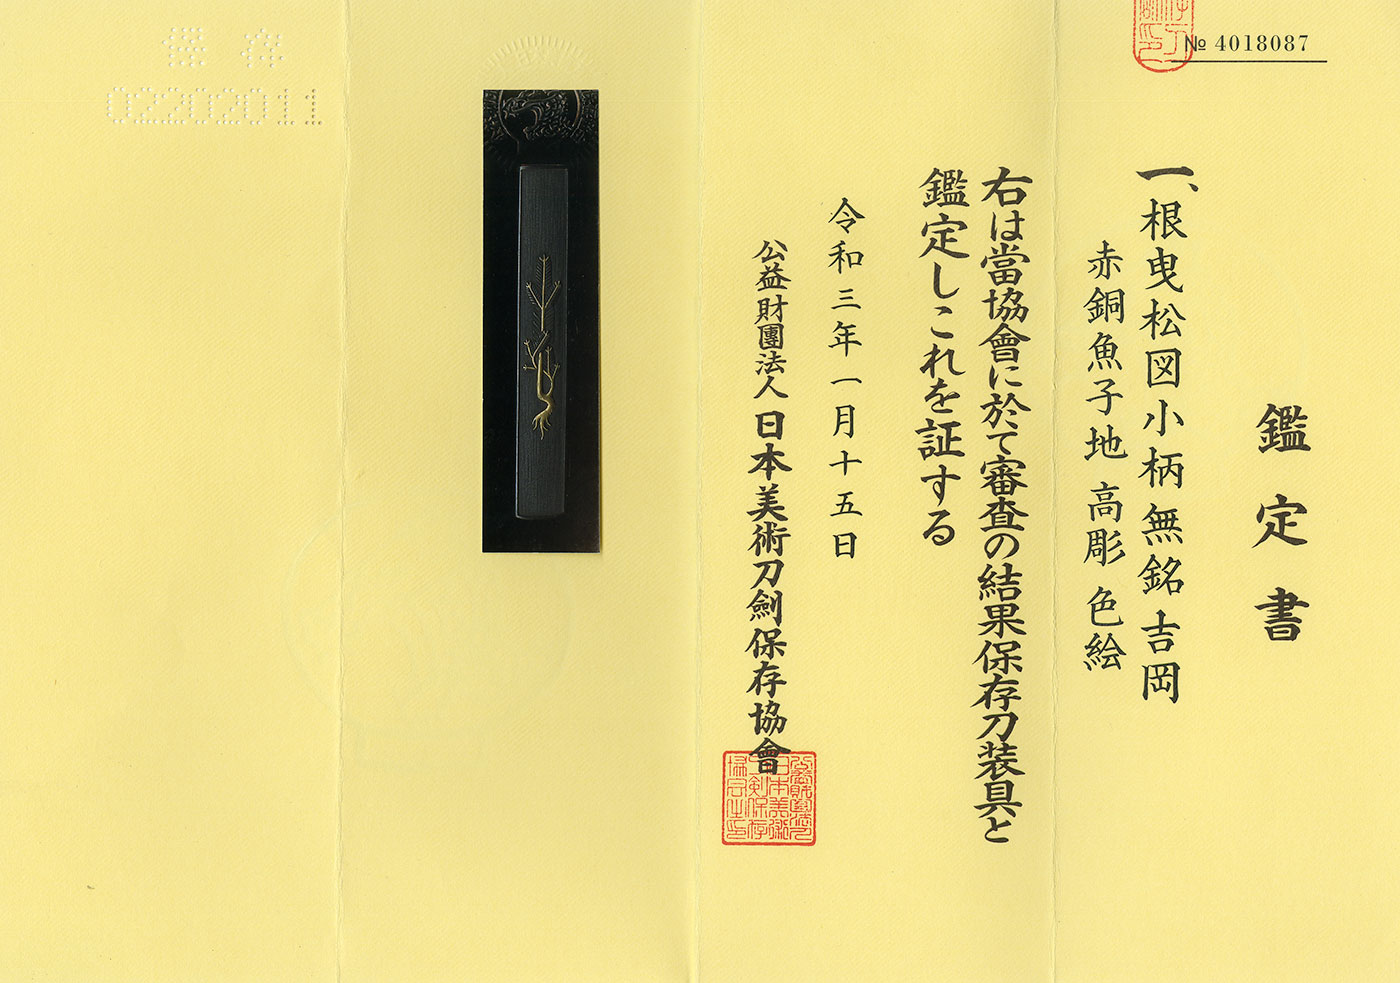 № 4018087
鑑定書
一、根曳松図小柄 無銘 吉岡
赤銅魚子地 高彫 色絵
右は當協會に於て審査の結果保存刀装具と
鑑定しこれを証する
令和三年一月十五日
公益財團法人 日本美術刀劍保存協會
保存
02202011